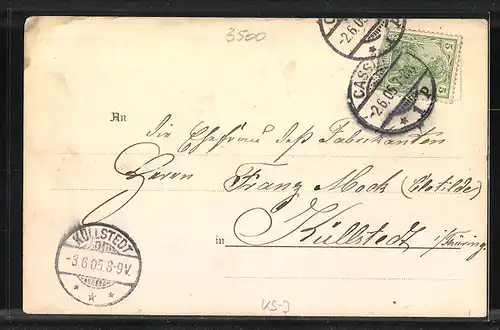 3500
CASSEL
-2.6.05.
5
5
CASSEL
-2.6.05.
An die Ehefrau deß Fabrikanten
Herrn Franz Mock (Clotilde)
in Küllstedt i/Thüring.
KÜLLSTEDT
-3.6.05.8-9V.
VS-J